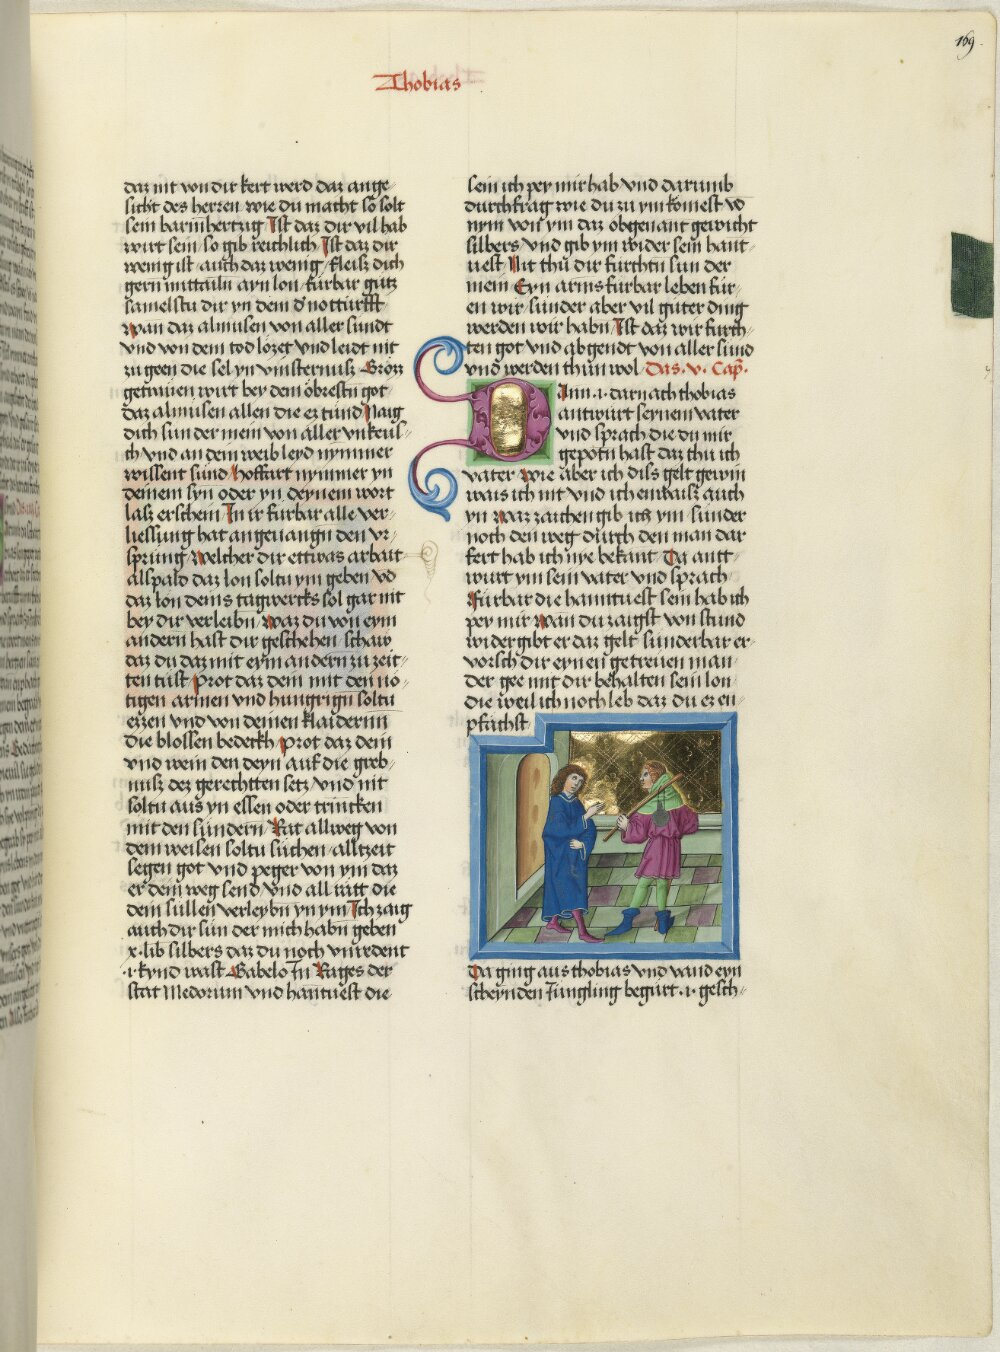 169
Thobias
daz nit von dir kert werd daz ange-
sicht des herren wie du macht so solt
sein barmhertzig Ist daz dir vil hab
wirt sein so gib reichlich Ist daz dir
wenig ist auch daz wenig fleisz dich
gern mittailn ayn lon furbar gutz
samelstu dir yn dem d' notturfft
wan daz almusen von aller sundt
vnd von dem tod lozet vnd leidt nit
zu geen die sel yn vinsternusz Grozz
getrauen wirt bey dem obrestn got
daz almusen allen die ez tund Naig
dich sun der mein von aller vnkeus-
ch vnd an dem weib leyd nymmer
wissent sund hoffart nymmer yn
deinem syn oder yn deynem wort
lasz erschein In ir furbar alle ver-
liessung hat angeuangn den vr-
sprung Welcher dir ettwas arbait
alspald daz lon soltu ym geben vd
daz lon deins tagwercks sol gar nit
bey dir verleibn waz du von eym
andern hast dir geschehen schaw
daz du daz mit eym andern zu zeit-
ten tust Prot daz dem mit den no-
tigen armen vnd hungrign soltu
ezzen vnd von deinen klaidernn
die blossen bedeckh Prot daz dein
vnd wein den deyn auf die greb-
nusz dez gerechtten setz vnd nit
soltu aus yn essen oder trincken
mit den sundern Rat allweg von
dem weisen soltu suchen alltzeit
segen got vnd peger von ym daz
er dein weg send vnd all ratt die
dein sullen verleybn yn ym Ich zaig
auch dir sun der mich habn geben
x lib silbers daz du noch vnirdent
.i. kynd wast Gabelo In Rages der
stat Medorum vnd hantuest die
sein ich per mir hab vnd darumb
durchfrag wie du zu ym komest vd
nym von ym daz obgenant gewicht
silbers vnd gib ym wider sein hant-
uest Nit thu dir furchtn sun der
mein Eyn arms furbar leben fur-
en wir sunder aber vil guter ding
werden wir habn Ist daz wir furch-
ten got vnd abgendt von aller sund
vnd werden thun wol Das .v. Cap.
DInn .i. darnach thobias
antwurt seynem vater
vnd sprach die du mir
gepotn hast daz thu ich
vater wie aber ich diss gelt gewin
wais ich nit vnd ich enwaisz auch
yn Waz zaichen gib ich ym sunder
noch den weg durch den man dar
fert hab ich nye bekant Da antt-
wurt ym sein vater vnd sprach
Furbar die hanntuest sein hab ich
pey mir Wan du zaigst von stund
widergibt er daz gelt sunderbar er-
vorsch dir eynen getreuen man
der gee mit dir behalten sein lon
die weil ich noch leb daz du ez en-
pfachst
Da ging aus thobias vnd vand eyn
scheynden Jungling begurt .i. gesch-